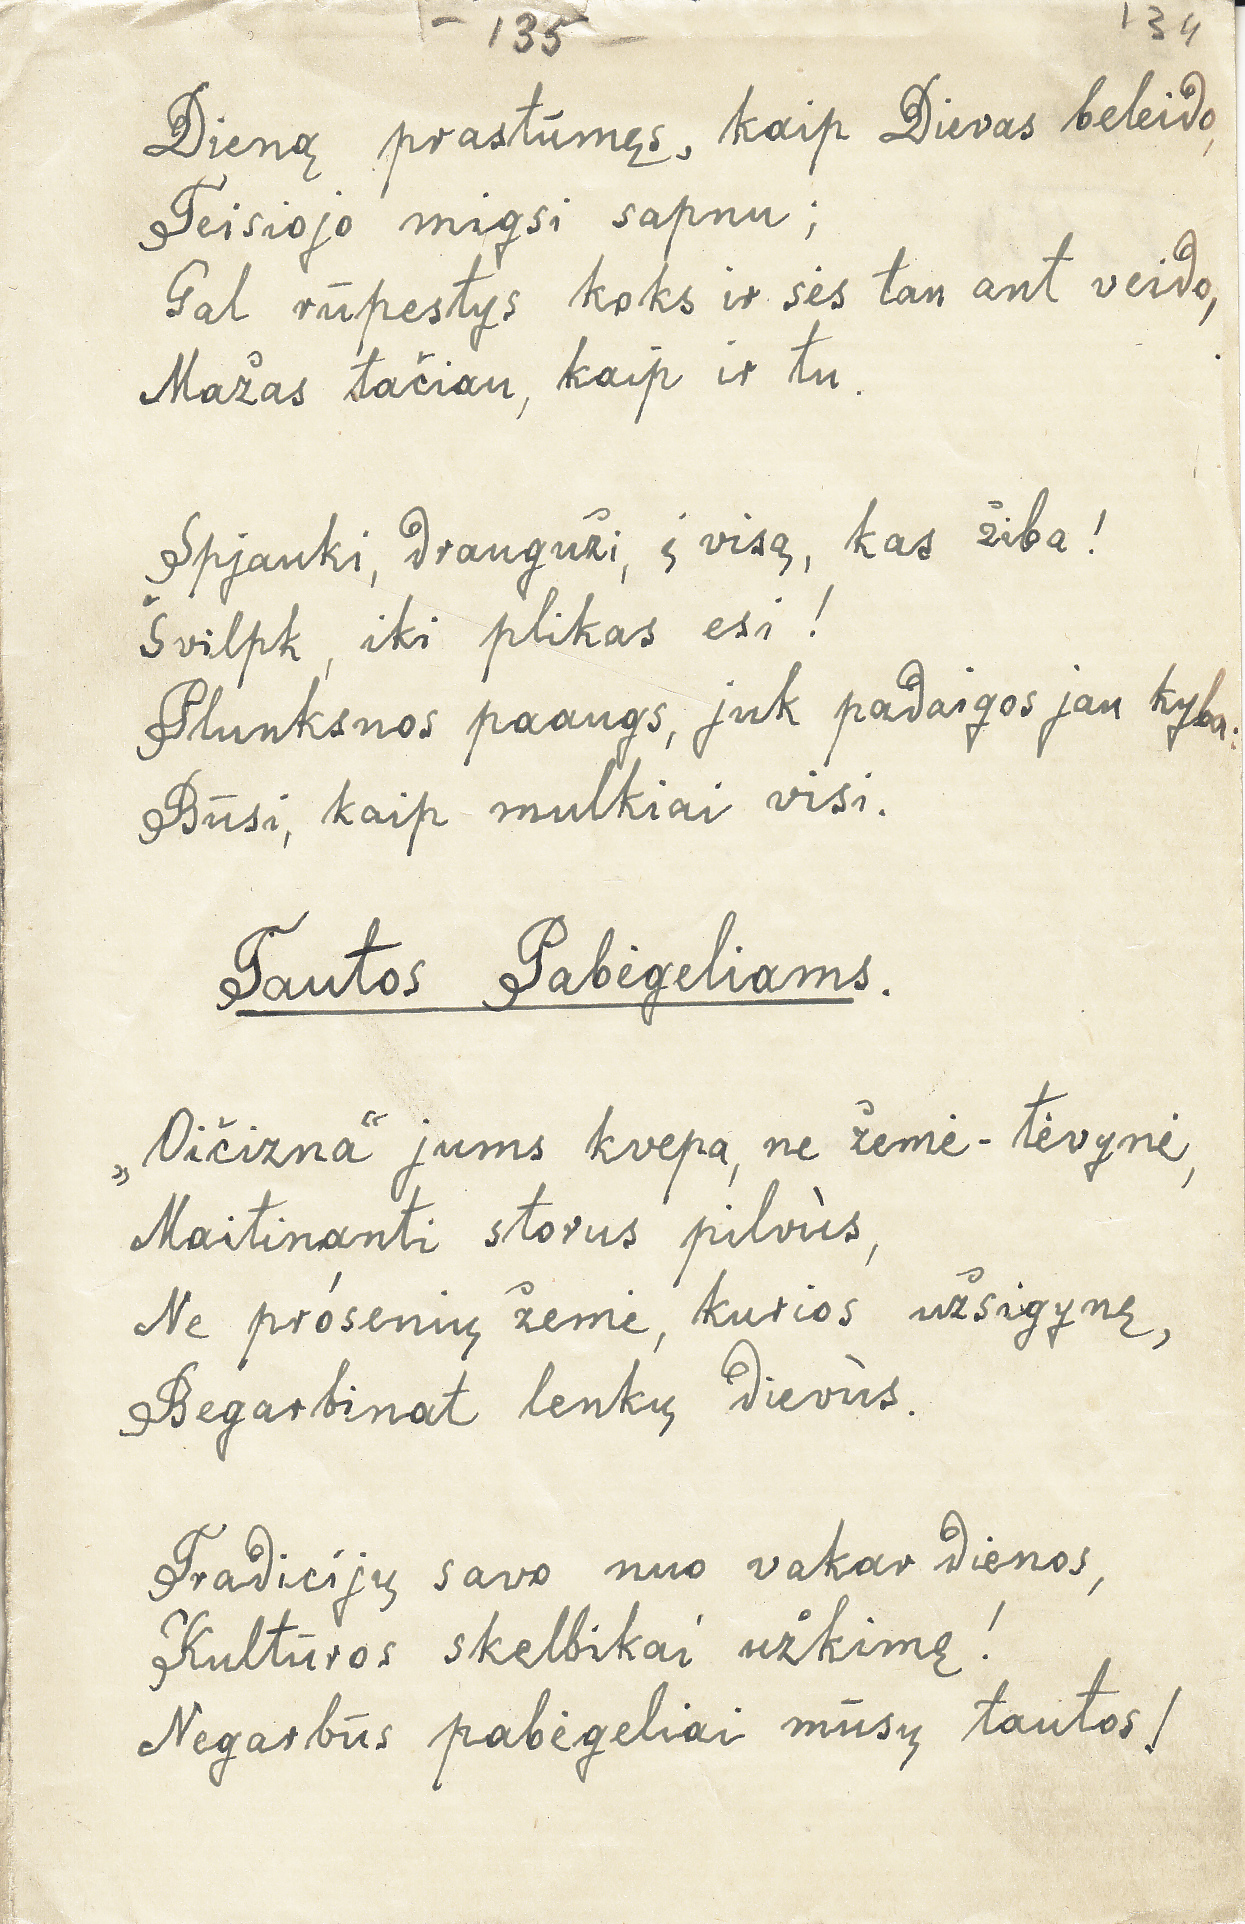 - 135 -
134
Dieną prastūmęs, kaip Dievas beleido,
Teisiojo migsi sapnu;
Gal rūpestys koks ir sės tau ant veido,
Mažas tačiau, kaip ir tu.
Spjauki, drauguži, į visą, kas žiba!
Švilpk, iki plikas esi!
Plunksnos paaugs, juk padaigos jau kyba:
Būsi, kaip mulkiai visi.
Tautos Pabėgeliams.
„Oičizna“ jums kvepa, ne žemė-tėvynė,
Maitinanti storus pilvùs,
Ne prósenių žemė, kurios užsigynę,
Begarbinat lenkų dievùs.
Tradicijų savo nuo vakar dienos,
Kultūros skelbikai užkimę!
Negarbūs pabėgeliai mūsų tautos!